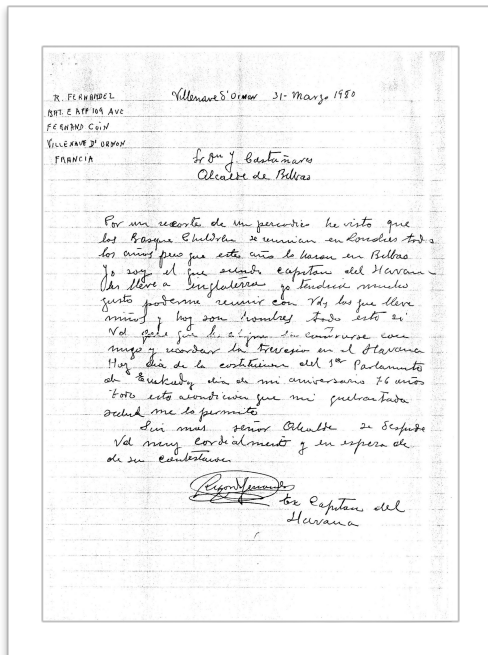 R. FERNANDEZ
BAT. E APP 109 AVE
FERNAND COIN
VILLENAVE D' ORNON
FRANCIA
Villenave d'Ornon 31-Marzo 1980
Sr Dn J. Castañares
Alcalde de Bilbao
Por un recorte de un periodico he visto que
los Basque Children se reunian en Londres todos
los años pero que este año lo haran en Bilbao
Yo soy el que siendo capitan del Havana
les lleve a Inglaterra yo tendria mucho
gusto poderme reunir con Vds los que lleve
niños y hoy son hombres todo esto si
Vd
migo y recordar la travesia en el Havana
Hoy dia de la constitucion del 1er Parlamento
de Euskady dia de mi aniversario 76 años
todo esto a condicion que mi quebrantada
salud me lo permita
Sin mas señor Alcalde se despide
Vd muy cordialmente y en espera de
de su contestacion
Ex Capitan del
Havana